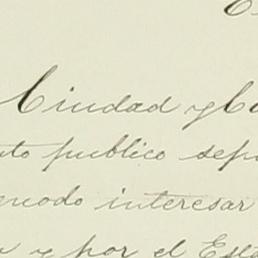 Ciudad y Co
to publico sepa
modo interesar
y por el Est